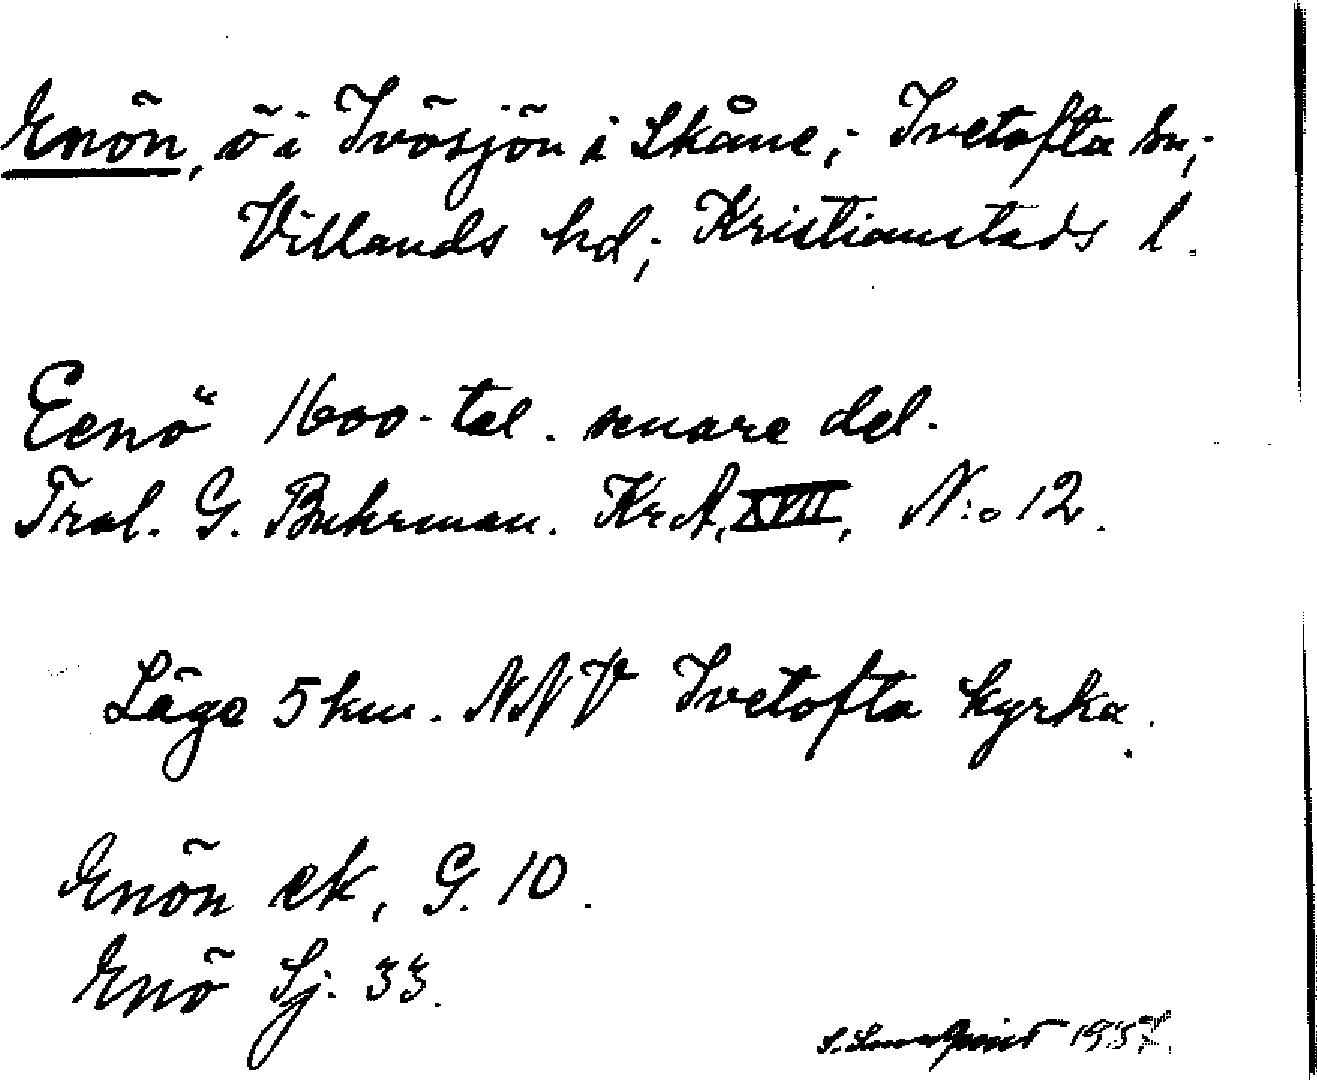 Enön, ö i Ivösjön i Skåne; Ivetofta sn;
Villands hd; Kristianstads l.
Eenö 1600-tal. senare del.
Tral. G. Buhrman. KrA, XVII, N:o 12.
Läge 5 km. NNV Ivetofta kyrka.
Enön ek, G. 10.
Enö Sj. 33.
S. 195